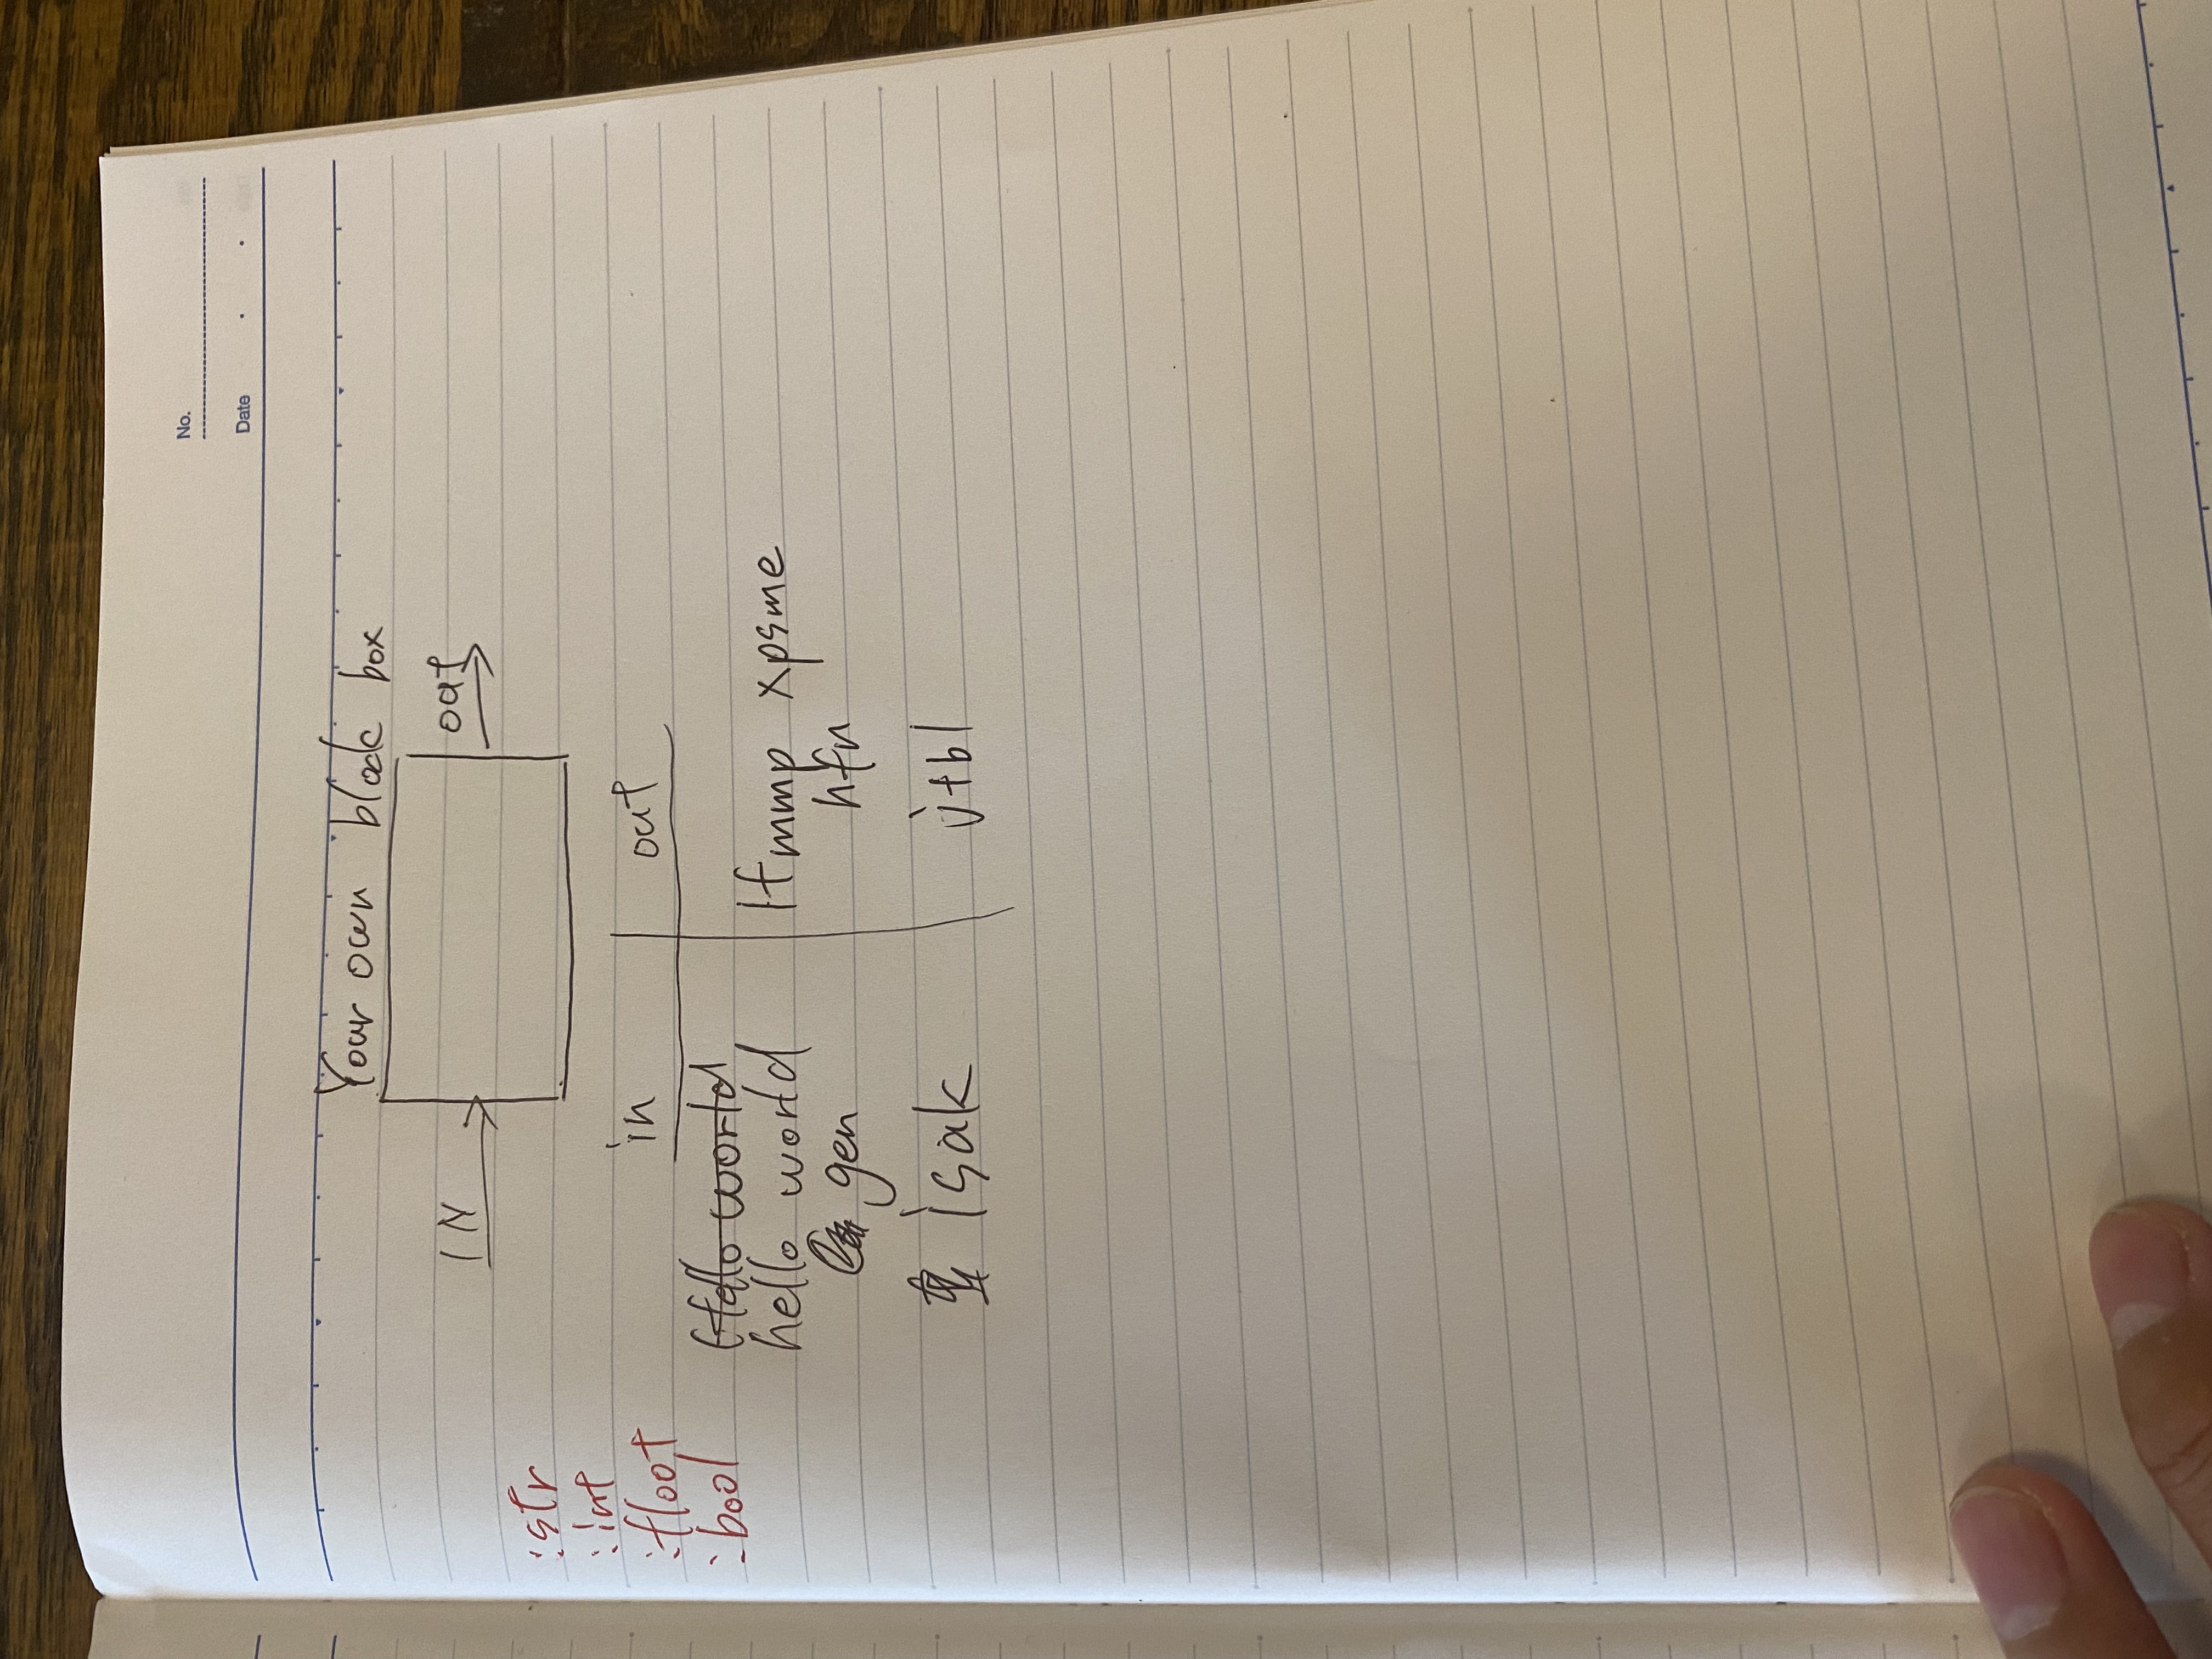 No.
Date
Your own black box
IN
out
:str
:int
:float
:bool
in out
Hello world
hello world Ifmmp xpsme
gen hfn
isak jtbl